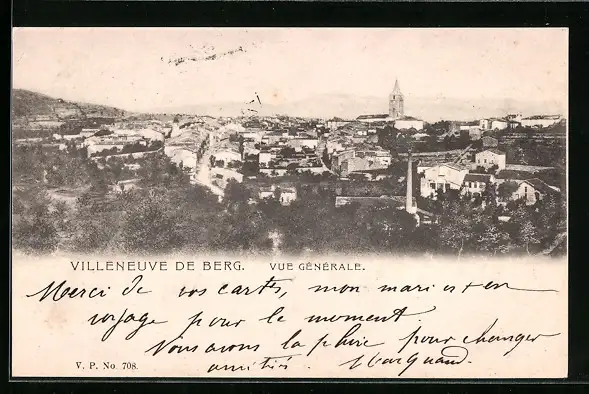 VILLENEUVE DE BERG. VUE GÉNÉRALE.
Merci de vos cartes, mon mari est en
voyage pour le moment
Vous avons la pluie pour changer
amitiés.
V. P. No 708.